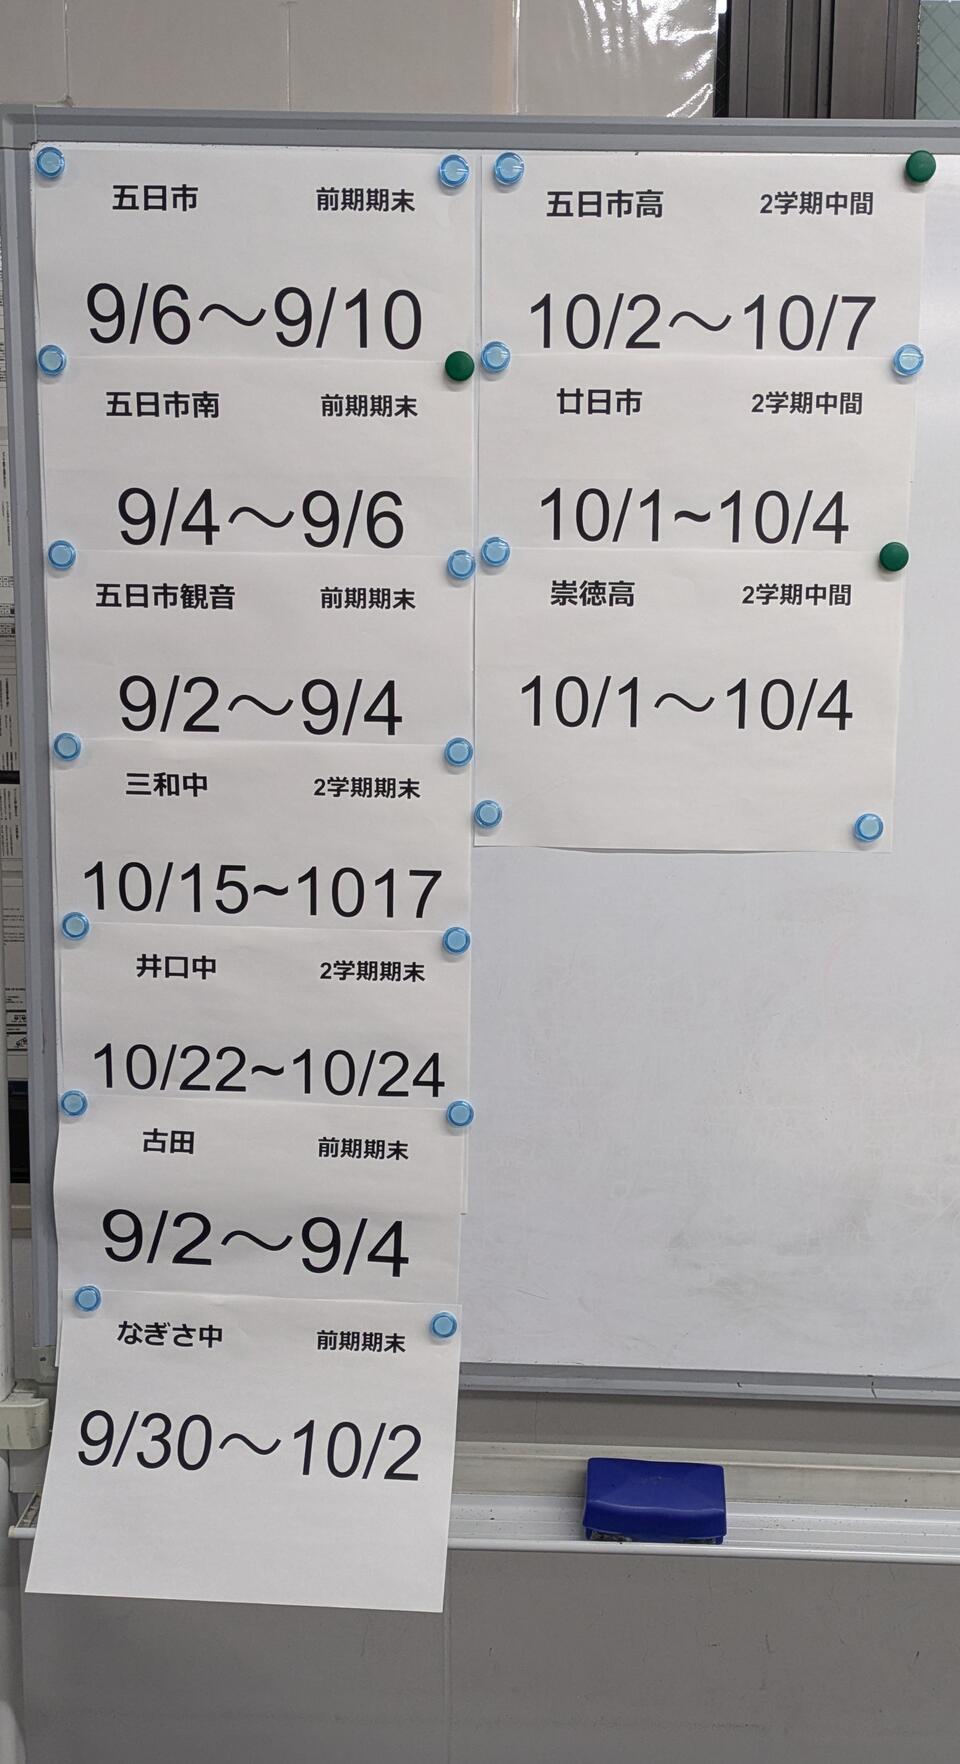 五日市 前期期末
9/6～9/10
五日市南 前期期末
9/4～9/6
五日市観音 前期期末
9/2～9/4
三和中 2学期期末
10/15~1017
井口中 2学期期末
10/22~10/24
古田 前期期末
9/2～9/4
なぎさ中 前期期末
9/30～10/2
五日市高 2学期中間
10/2～10/7
廿日市 2学期中間
10/1~10/4
崇徳高 2学期中間
10/1～10/4